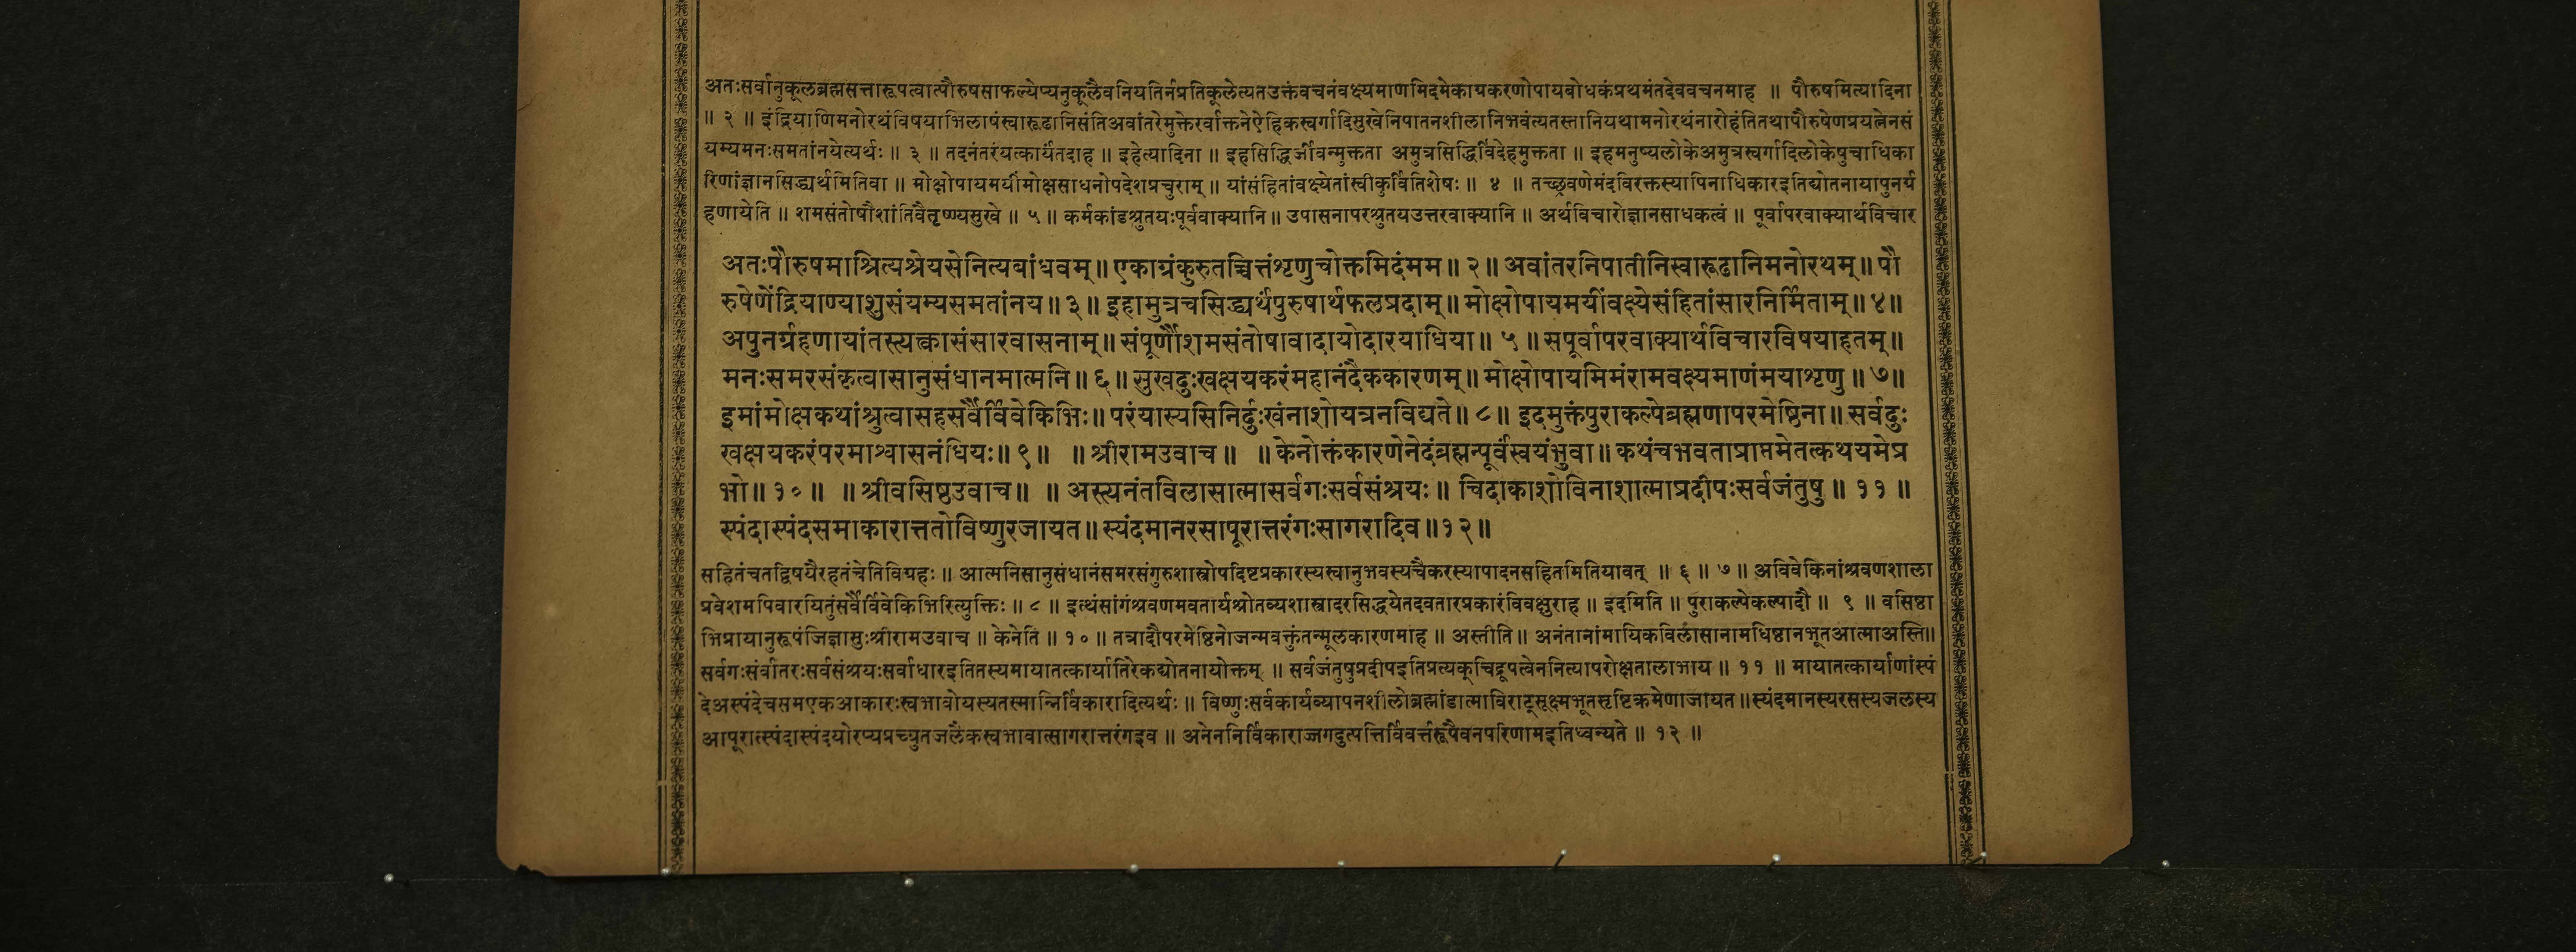 अतःसर्वानुकूलब्रह्मसत्तारूपत्वात्पौरुषसाफल्येप्यनुकूलैवनियतिर्नप्रतिकूलेत्यतउक्तंवचनंवक्ष्यमाणमिदमेकाग्रकरणोपायबोधकंप्रथमंतदेववचनमाह ॥ पौरुषमित्यादिना
॥ २ ॥ इंद्रियाणिमनोरथंविषयाभिलाषंस्वारूढानिसंतिअवांतरेमुक्तेरर्वाक्तनेऐहिकस्वर्गादिसुखेनिपातनशीलानिभवंत्यतस्तानियथामनोरथंनारोहंतितथापौरुषेणप्रयत्नेनसं
यम्यमनःसमतांनयेत्यर्थः ॥ ३ ॥ तदनंतरंयत्कार्यंतदाह ॥ इहेत्यादिना ॥ इहसिद्धिर्जीवन्मुक्तता अमुत्रसिद्धिर्विदेहमुक्तता ॥ इहमनुष्यलोकेअमुत्रस्वर्गादिलोकेषुचाधिका
रिणांज्ञानसिद्ध्यर्थमितिवा ॥ मोक्षोपायमयींमोक्षसाधनोपदेशप्रचुराम् ॥ यांसंहितांवक्ष्येतांस्वीकुर्वितिशेषः ॥ ४ ॥ तच्छ्रवणेमंदविरक्तस्यापिनाधिकारइतिद्योतनायापुनर्ग्र
हणायेति ॥ शमसंतोषौशांतिवैतृष्ण्यसुखे ॥ ५ ॥ कर्मकांडश्रुतयःपूर्ववाक्यानि ॥ उपासनापरश्रुतयउत्तरवाक्यानि ॥ अर्थविचारोज्ञानसाधकत्वं ॥ पूर्वापरवाक्यार्थविचार
अतःपौरुषमाश्रित्यश्रेयसेनित्यबांधवम् ॥ एकाग्रंकुरुतच्चित्तंशृणुचोक्तमिदंमम ॥ २ ॥ अवांतरनिपातीनिस्वारूढानिमनोरथम् ॥ पौ
रुषेणेंद्रियाण्याशुसंयम्यसमतांनय ॥ ३ ॥ इहामुत्रचसिद्ध्यर्थंपुरुषार्थफलप्रदाम् ॥ मोक्षोपायमयींवक्ष्येसंहितांसारनिर्मिताम् ॥ ४ ॥
अपुनर्ग्रहणायांतस्त्यक्त्वासंसारवासनाम् ॥ संपूर्णौशमसंतोषावादायोदारयाधिया ॥ ५ ॥ सपूर्वापरवाक्यार्थविचारविषयाहतम् ॥
मनःसमरसंकृत्वासानुसंधानमात्मनि ॥ ६ ॥ सुखदुःखक्षयकरंमहानंदैककारणम् ॥ मोक्षोपायमिमंरामवक्ष्यमाणंमयाशृणु ॥ ७ ॥
इमांमोक्षकथांश्रुत्वासहसर्वैर्विवेकिभिः ॥ परंयास्यसिनिर्दुःखंनाशोयत्रनविद्यते ॥ ८ ॥ इदमुक्तंपुराकल्पेब्रह्मणापरमेष्ठिना ॥ सर्वदुः
खक्षयकरंपरमाश्वासनंधियः ॥ ९ ॥ ॥ श्रीरामउवाच ॥ ॥ केनोक्तंकारणेनेदंब्रह्मन्पूर्वंस्वयंभुवा ॥ कथंचभवताप्राप्तमेतत्कथयमेप्र
भो ॥ १० ॥ ॥ श्रीवसिष्ठउवाच ॥ ॥ अस्त्यनंतविलासात्मासर्वगःसर्वसंश्रयः ॥ चिदाकाशोविनाशात्माप्रदीपःसर्वजंतुषु ॥ ११ ॥
स्पंदास्पंदसमाकारात्ततोविष्णुरजायत ॥ स्यंदमानरसापूरात्तरंगःसागरादिव ॥ १२ ॥
सहितंचतद्विषयैरहतंचेतिविग्रहः ॥ आत्मनिसानुसंधानंसमरसंगुरुशास्त्रोपदिष्टप्रकारस्यस्वानुभवस्यचैकरस्यापादनसहितमितियावत् ॥ ६ ॥ ७ ॥ अविवेकिनांश्रवणशाला
प्रवेशमपिवारयितुंसर्वैर्विवेकिभिरित्युक्तिः ॥ ८ ॥ इत्थंसांगंश्रवणमवतार्यश्रोतव्यशास्त्रादरसिद्धयेतदवतारप्रकारंविवक्षुराह ॥ इदमिति ॥ पुराकल्पेकल्पादौ ॥ ९ ॥ वसिष्ठा
भिप्रायानुरूपंजिज्ञासुःश्रीरामउवाच ॥ केनेति ॥ १० ॥ तत्रादौपरमेष्ठिनोजन्मवक्तुंतन्मूलकारणमाह ॥ अस्तीति ॥ अनंतानांमायिकविलासानामधिष्ठानभूतआत्माअस्ति॥
सर्वगःसर्वांतरःसर्वसंश्रयःसर्वाधारइतितस्यमायातत्कार्यातिरेकद्योतनायोक्तम् ॥ सर्वजंतुषुप्रदीपइतिप्रत्यक्चिद्रूपत्वेननित्यापरोक्षतालाभाय ॥ ११ ॥ मायातत्कार्याणांस्पं
देअस्पंदेचसमएकआकारःस्वभावोयस्यतस्मान्निर्विकारादित्यर्थः ॥ विष्णुःसर्वकार्यव्यापनशीलोब्रह्मांडात्माविराट्सूक्ष्मभूतसृष्टिक्रमेणाजायत ॥स्यंदमानस्यरसस्यजलस्य
आपूरात्स्पंदास्पंदयोरप्यप्रच्युतजलैकस्वभावात्सागरात्तरंगइव ॥ अनेननिर्विकाराज्जगदुत्पत्तिर्विवर्त्तरूपैवनपरिणामइतिध्वन्यते ॥ १२ ॥